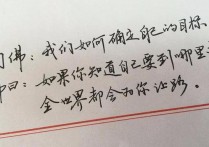 佛：我们如何确定自己的目标
曰：如果你知道自己要到哪里
全世界都会为你让路。